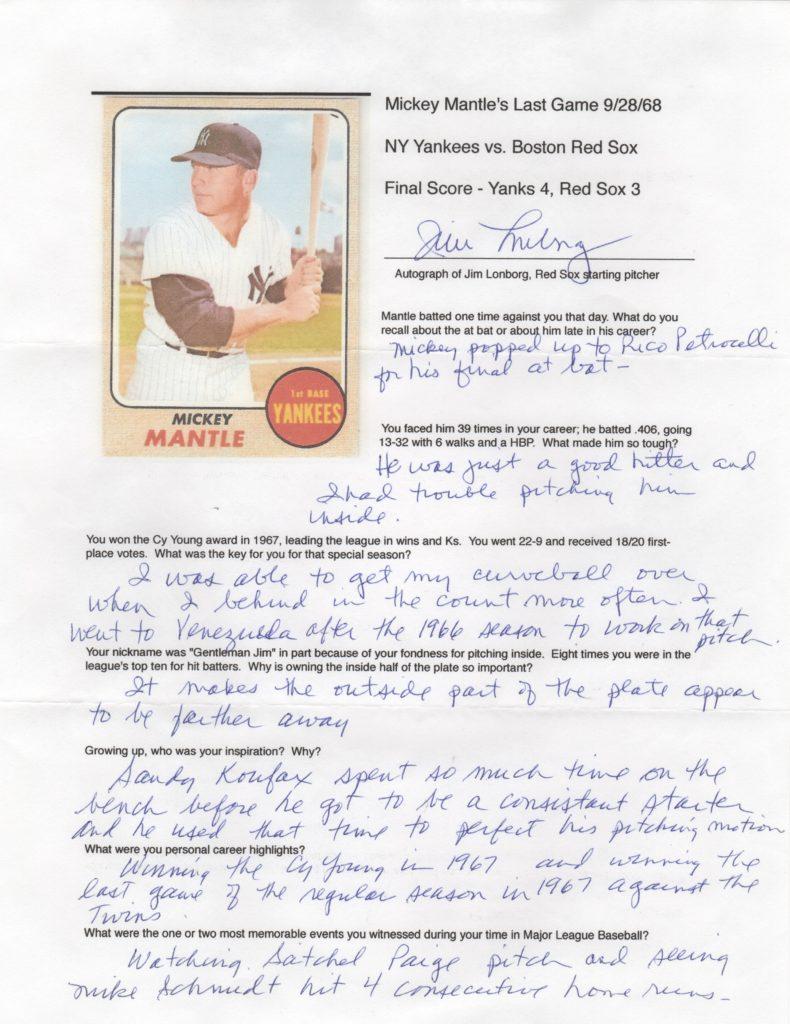 Mickey Mantle's Last Game 9/28/68
NY Yankees vs. Boston Red Sox
Final Score - Yanks 4, Red Sox 3
NY
NY
1st BASE
YANKEES
MICKEY
MANTLE
Jim Lonborg
Autograph of Jim Lonborg, Red Sox starting pitcher
Mantle batted one time against you that day. What do you
recall about the at bat or about him late in his career?
Mickey popped up to Rico Petrocelli
for his final at bat -
You faced him 39 times in your career; he batted .406, going
13-32 with 6 walks and a HBP. What made him so tough?
He was just a good hitter and
I had trouble pitching him
inside.
You won the Cy Young award in 1967, leading the league in wins and Ks. You went 22-9 and received 18/20 first-
place votes. What was the key for you for that special season?
I was able to get my curveball over
when I behind in the count more often. I
went to Venezuela after the 1966 season to work on that
pitch.
Your nickname was "Gentleman Jim" in part because of your fondness for pitching inside. Eight times you were in the
league's top ten for hit batters. Why is owning the inside half of the plate so important?
It makes the outside part of the plate appear
to be farther away
Growing up, who was your inspiration? Why?
Sandy Koufax spent so much time on the
bench before he got to be a consistant starter
and he used that time to perfect his pitching motion
What were you personal career highlights?
Winning the Cy Young in 1967 and winning the
last game of the regular season in 1967 against the
Twins
What were the one or two most memorable events you witnessed during your time in Major League Baseball?
Watching Satchel Paige pitch and seeing
Mike Schmidt hit 4 consecutive home runs -